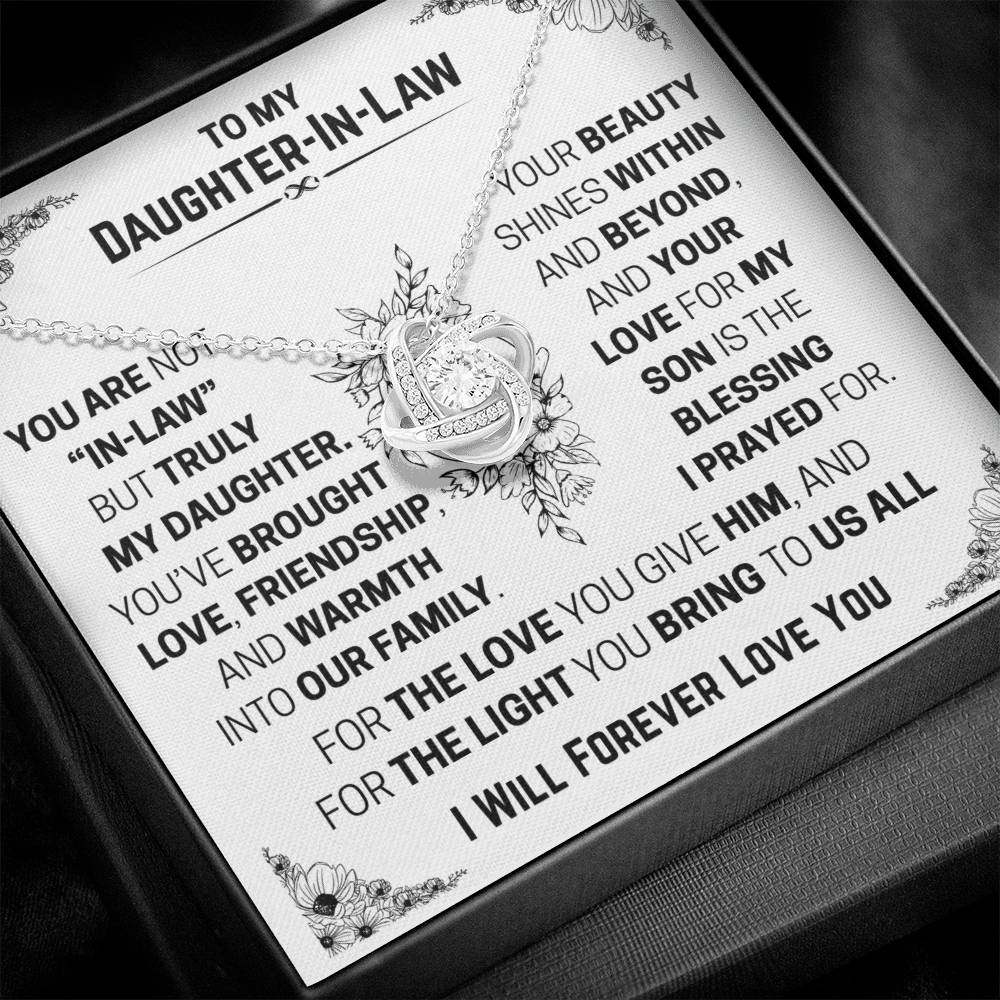 TO MY
DAUGHTER-IN-LAW
YOU ARE NOT
“IN-LAW”
BUT TRULY
MY DAUGHTER.
YOU’VE BROUGHT
LOVE, FRIENDSHIP,
AND WARMTH
INTO OUR FAMILY.
YOUR BEAUTY
SHINES WITHIN
AND BEYOND,
AND YOUR
LOVE FOR MY
SON IS THE
BLESSING
I PRAYED FOR.
FOR THE LOVE YOU GIVE HIM, AND
FOR THE LIGHT YOU BRING TO US ALL
I WILL FOREVER LOVE YOU